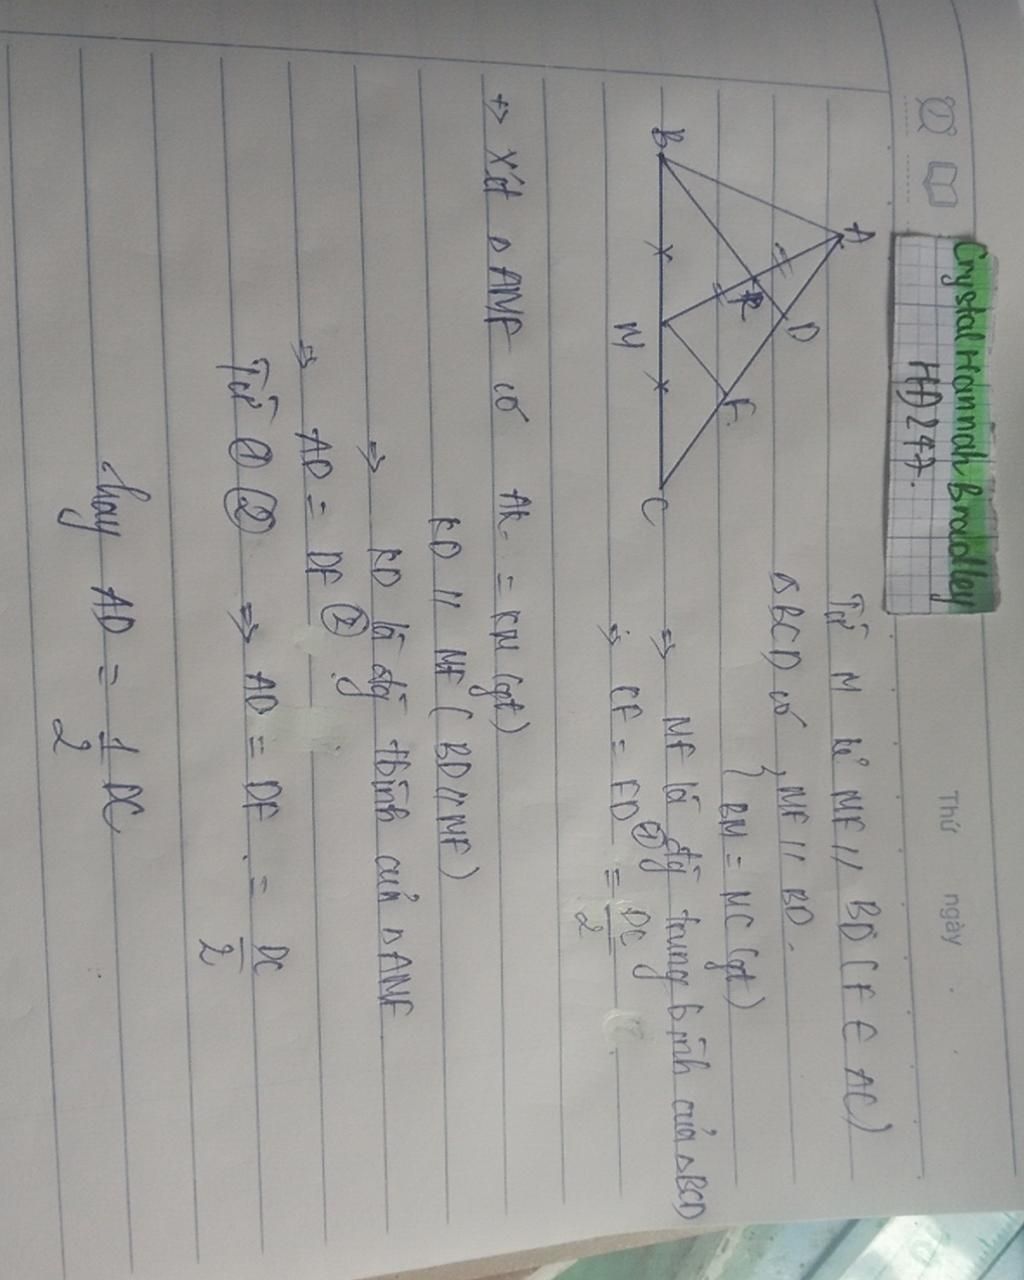 Crystal Hannah Bradley
HHD247.
Thứ ngày
Từ M kẻ MF // BD (F ∈ AC)
ΔBCD có } MF // BD.
BM = MC (gt)
⇒ MF là đg trung bình của ΔBCD
⇒ CF = FD ① = DC/2
A
B
K
D
F
M
C
+> Xét ΔAMF có AK = KM (gt)
KD // MF (BD // MF)
⇒ KD là đg tbình của ΔAMF
⇒ AD = DF ②
Từ ① ② ⇒ AD = DF = DC/2
hay AD = 1/2 DC